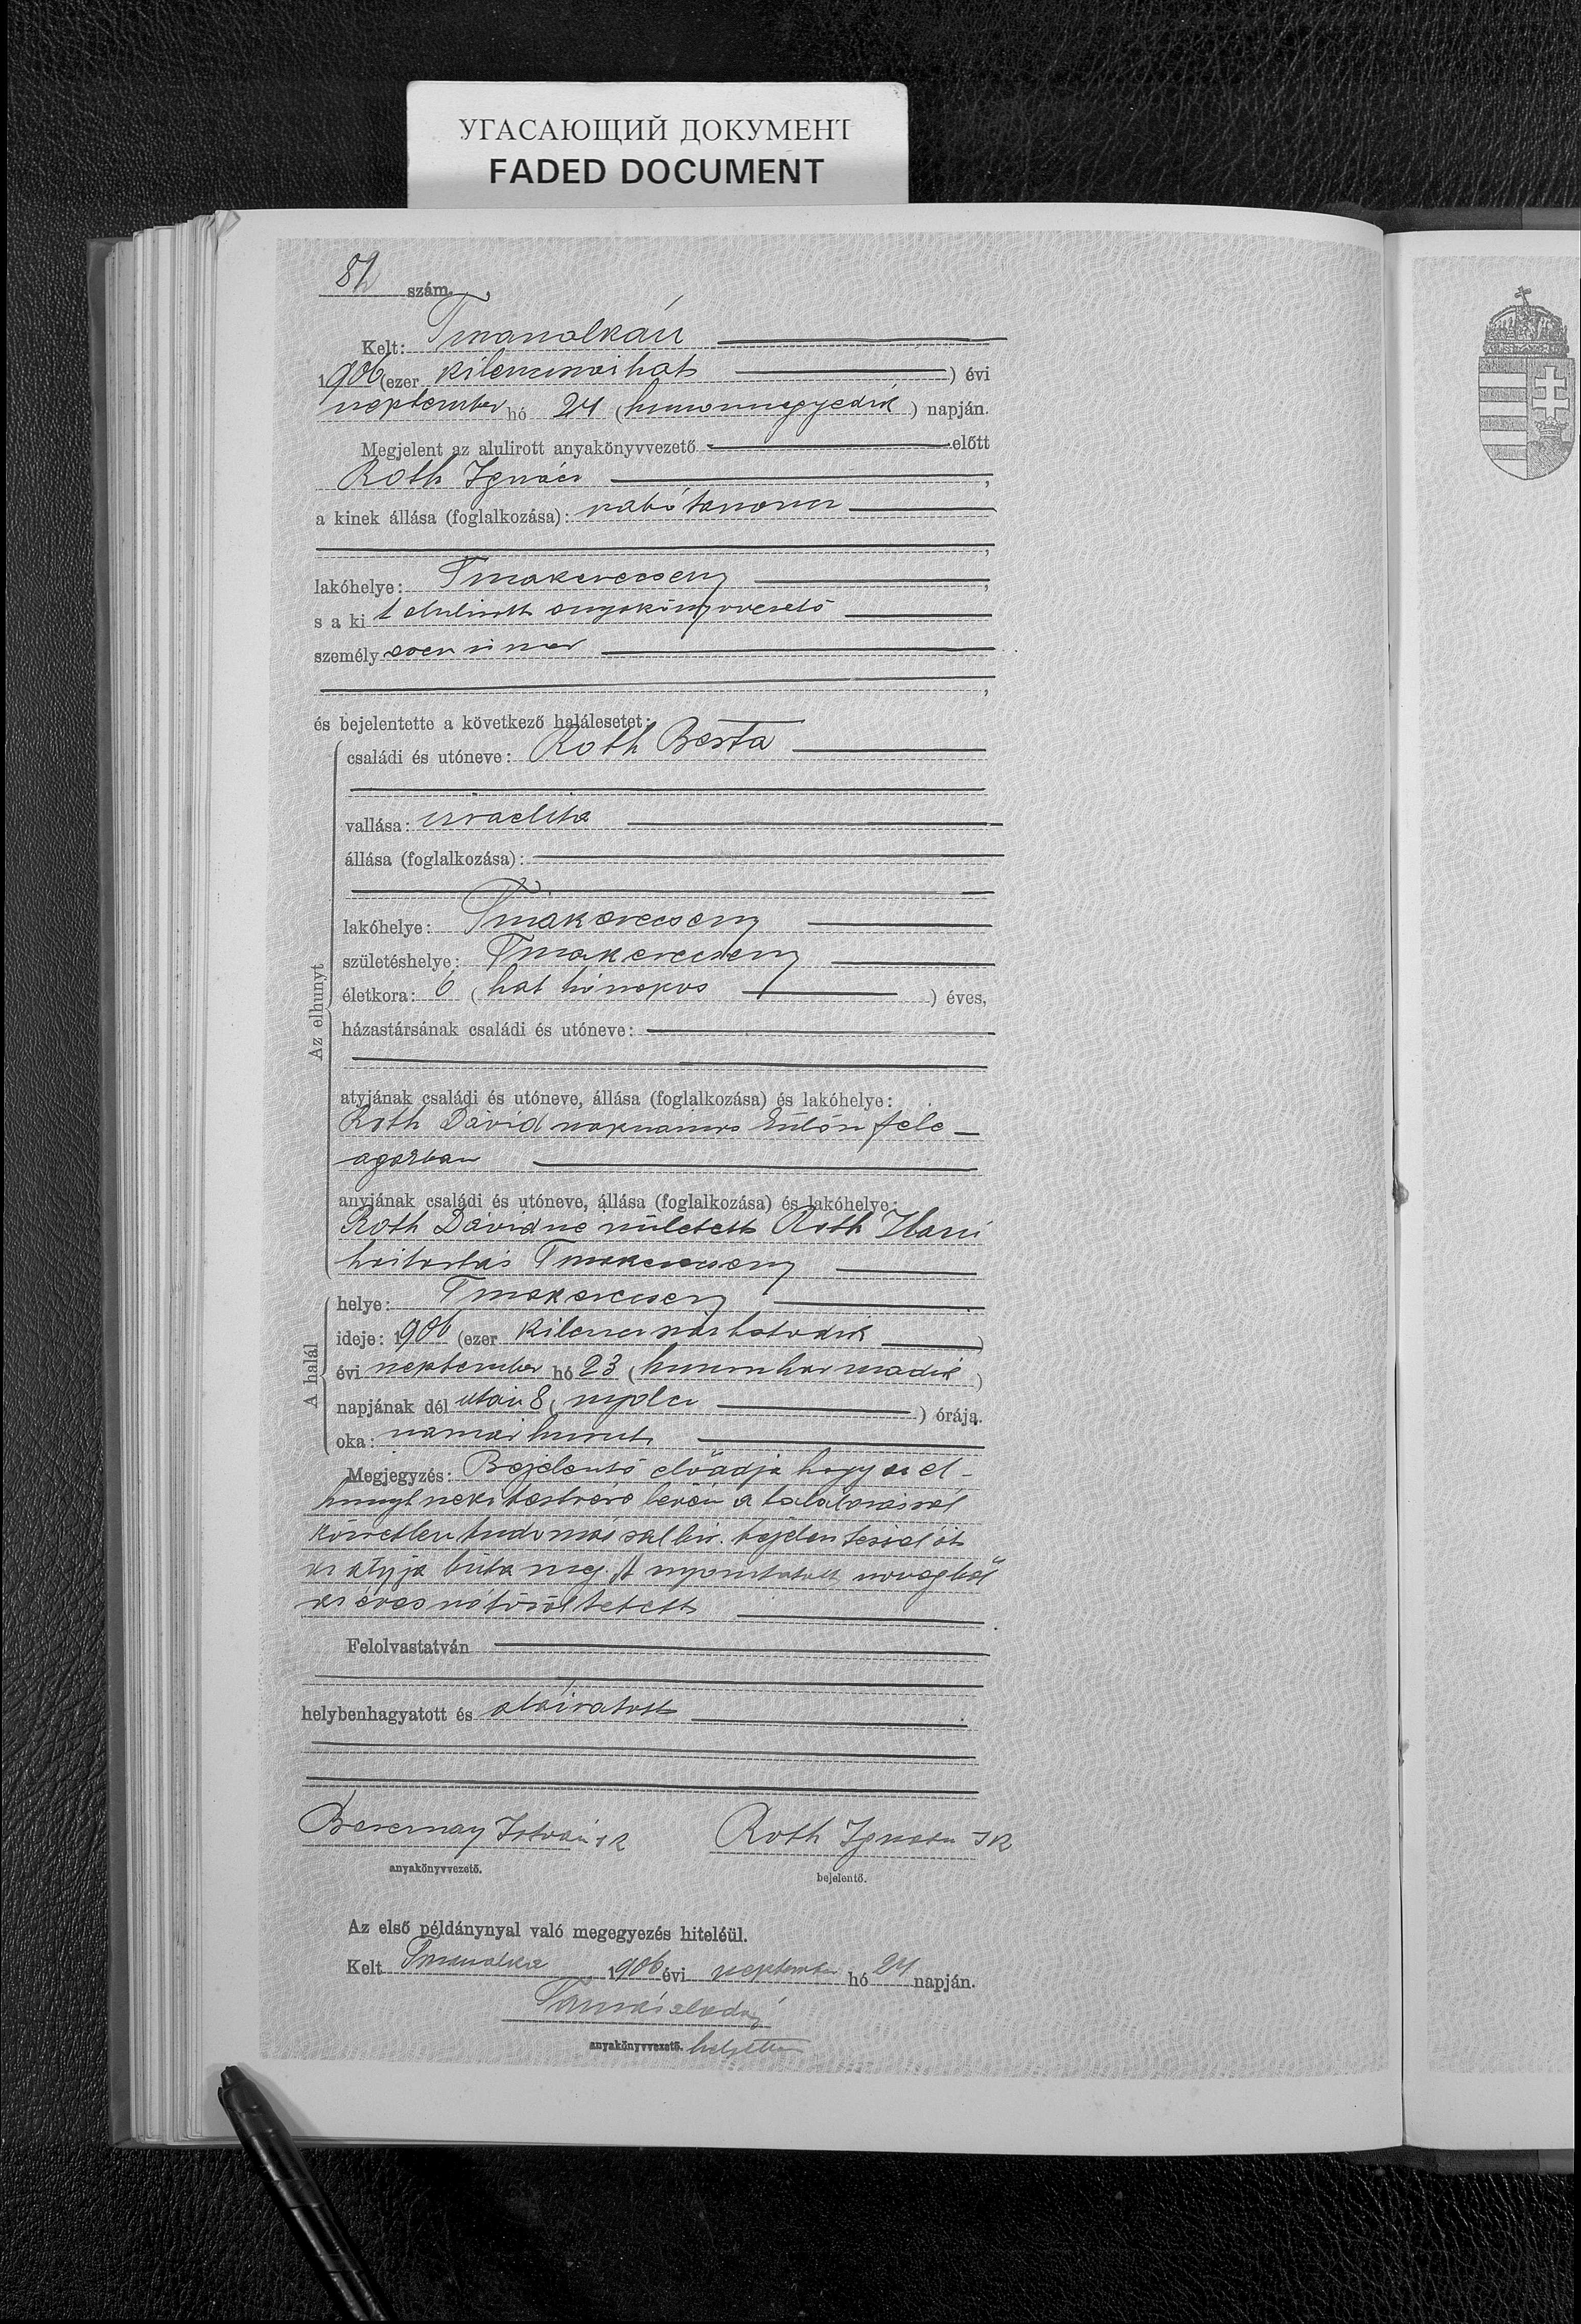 УГАСАЮЩИЙ ДОКУМЕНТ
FADED DOCUMENT
82 szám.
Kelt: Tiszasalkán
1906 (ezer kilencszázhat) évi
szeptember hó 24 (huszonnegyedik) napján.
Megjelent az alulirott anyakönyvvezető előtt
Roth Ignácz,
a kinek állása (foglalkozása): szabó
lakóhelye: Tiszakerecseny,
s a ki t alulirott anyakönyvvezető
személyesen ismer,
és bejelentette a következő halálesetet:
Az elhunyt
családi és utóneve: Roth Berta
vallása: izraelita
állása (foglalkozása):
lakóhelye: Tiszakerecseny
születéshelye: Tiszakerecseny
életkora: 6 (hat hónapos) éves,
házastársának családi és utóneve:
atyjának családi és utóneve, állása (foglalkozása) és lakóhelye:
Roth Dávid napszámos külömféle
anyjának családi és utóneve, állása (foglalkozása) és lakóhelye:
Roth Dávidné született Roth Háni
háztartás Tiszakerecseny
A halál
helye: Tiszakerecseny
ideje: 1906 (ezer kilencszázhatodik)
évi szeptember hó 23 (huszonharmadik)
napjának dél után 8 (nyolcz) órája.
oka: szamárhurut
Megjegyzés: Bejelentő előadja hogy az el-
hunyt neki testvére lévén a halálozásról
közvetlen tudomással bir. bejelentéssel őt
az atyja bízta meg. A nyomtatott szövegből
az éves szó töröltetett.
Felolvastatván
helybenhagyatott és aláiratott.
István sk
anyakönyvvezető.
Roth Ignácz sk
bejelentő.
Az első példánynyal való megegyezés hiteléül.
Kelt 1906 évi szeptember hó 24 napján.
anyakönyvvezető. helyettes